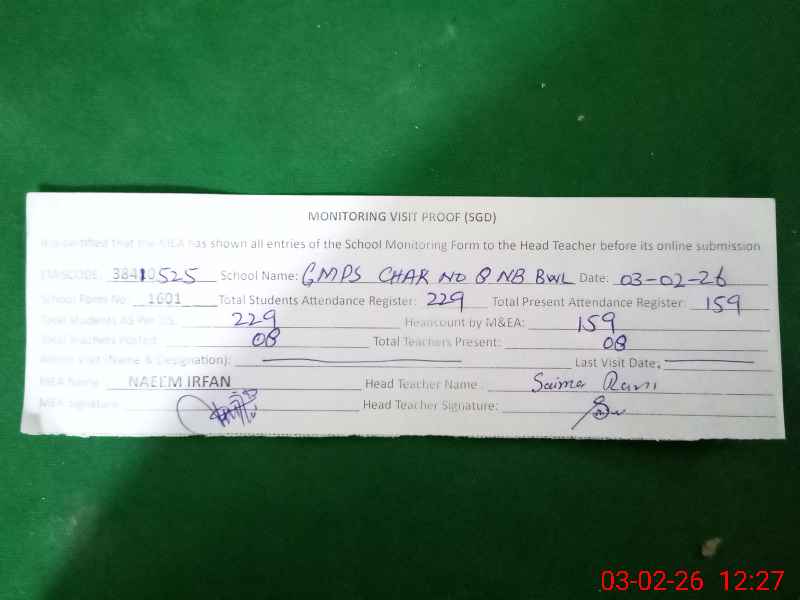 MONITORING VISIT PROOF (SGD)
It is certified that the MEA has shown all entries of the School Monitoring Form to the Head Teacher before its online submission
EMISCODE: 38410525 School Name: GMPS CHAK NO 8 NB BWL Date: 03-02-26
School Form No. 1601 Total Students Attendance Register: 229 Total Present Attendance Register: 159
Total Students AS Per SIS: 229 Headcount by M&EA: 159
Total Teachers Posted: 08 Total Teachers Present: 08
Visit (Name & Designation): Last Visit Date:
MEA Name: NAEEM IRFAN Head Teacher Name: Saima Rani
MEA Signature: Head Teacher Signature:
03-02-26 12:27